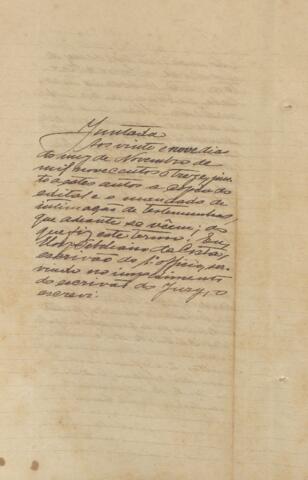 Juntada
Aos vinte e nove dias
do mez de Novembro de
mil novecentos e treze, jun-
to a estes autos a copia do
edital e o mandado de
intimação de testemunhas
que adeante se vêem; do
que fiz este termo. Eu,
Sebastiano da Costa,
escrivão do 1º officio, ser-
vindo no impedimento
do escrivão do Jury, o
escrevi.